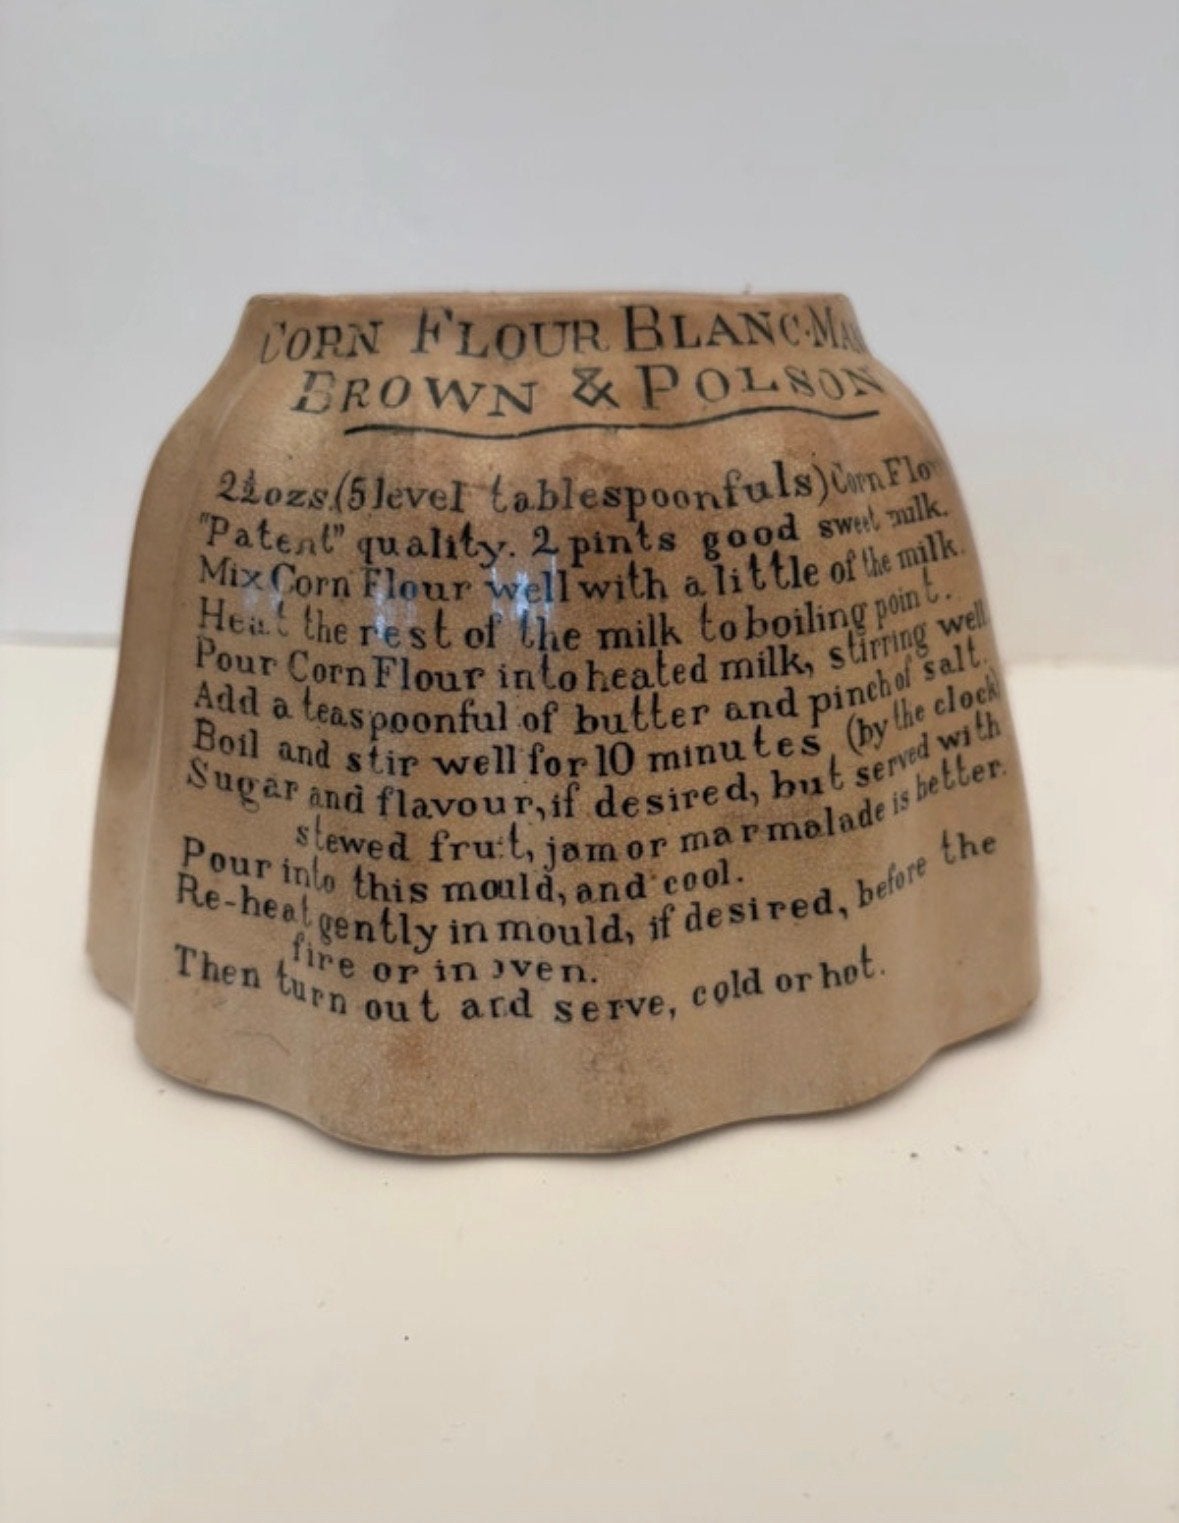 CORN FLOUR BLANC-MAN
BROWN & POLSON
2½ozs.(5 level tablespoonfuls) Corn Flo
"Patent" quality. 2 pints good sweet milk.
Mix Corn Flour well with a little of the milk.
Heat the rest of the milk to boiling point.
Pour Corn Flour into heated milk, stirring well.
Add a teaspoonful of butter and pinch of salt.
Boil and stir well for 10 minutes (by the clock)
Sugar and flavour, if desired, but served with
stewed fruit, jam or marmalade is better.
Pour into this mould, and cool.
Re-heat gently in mould, if desired, before the
fire or in oven.
Then turn out and serve, cold or hot.